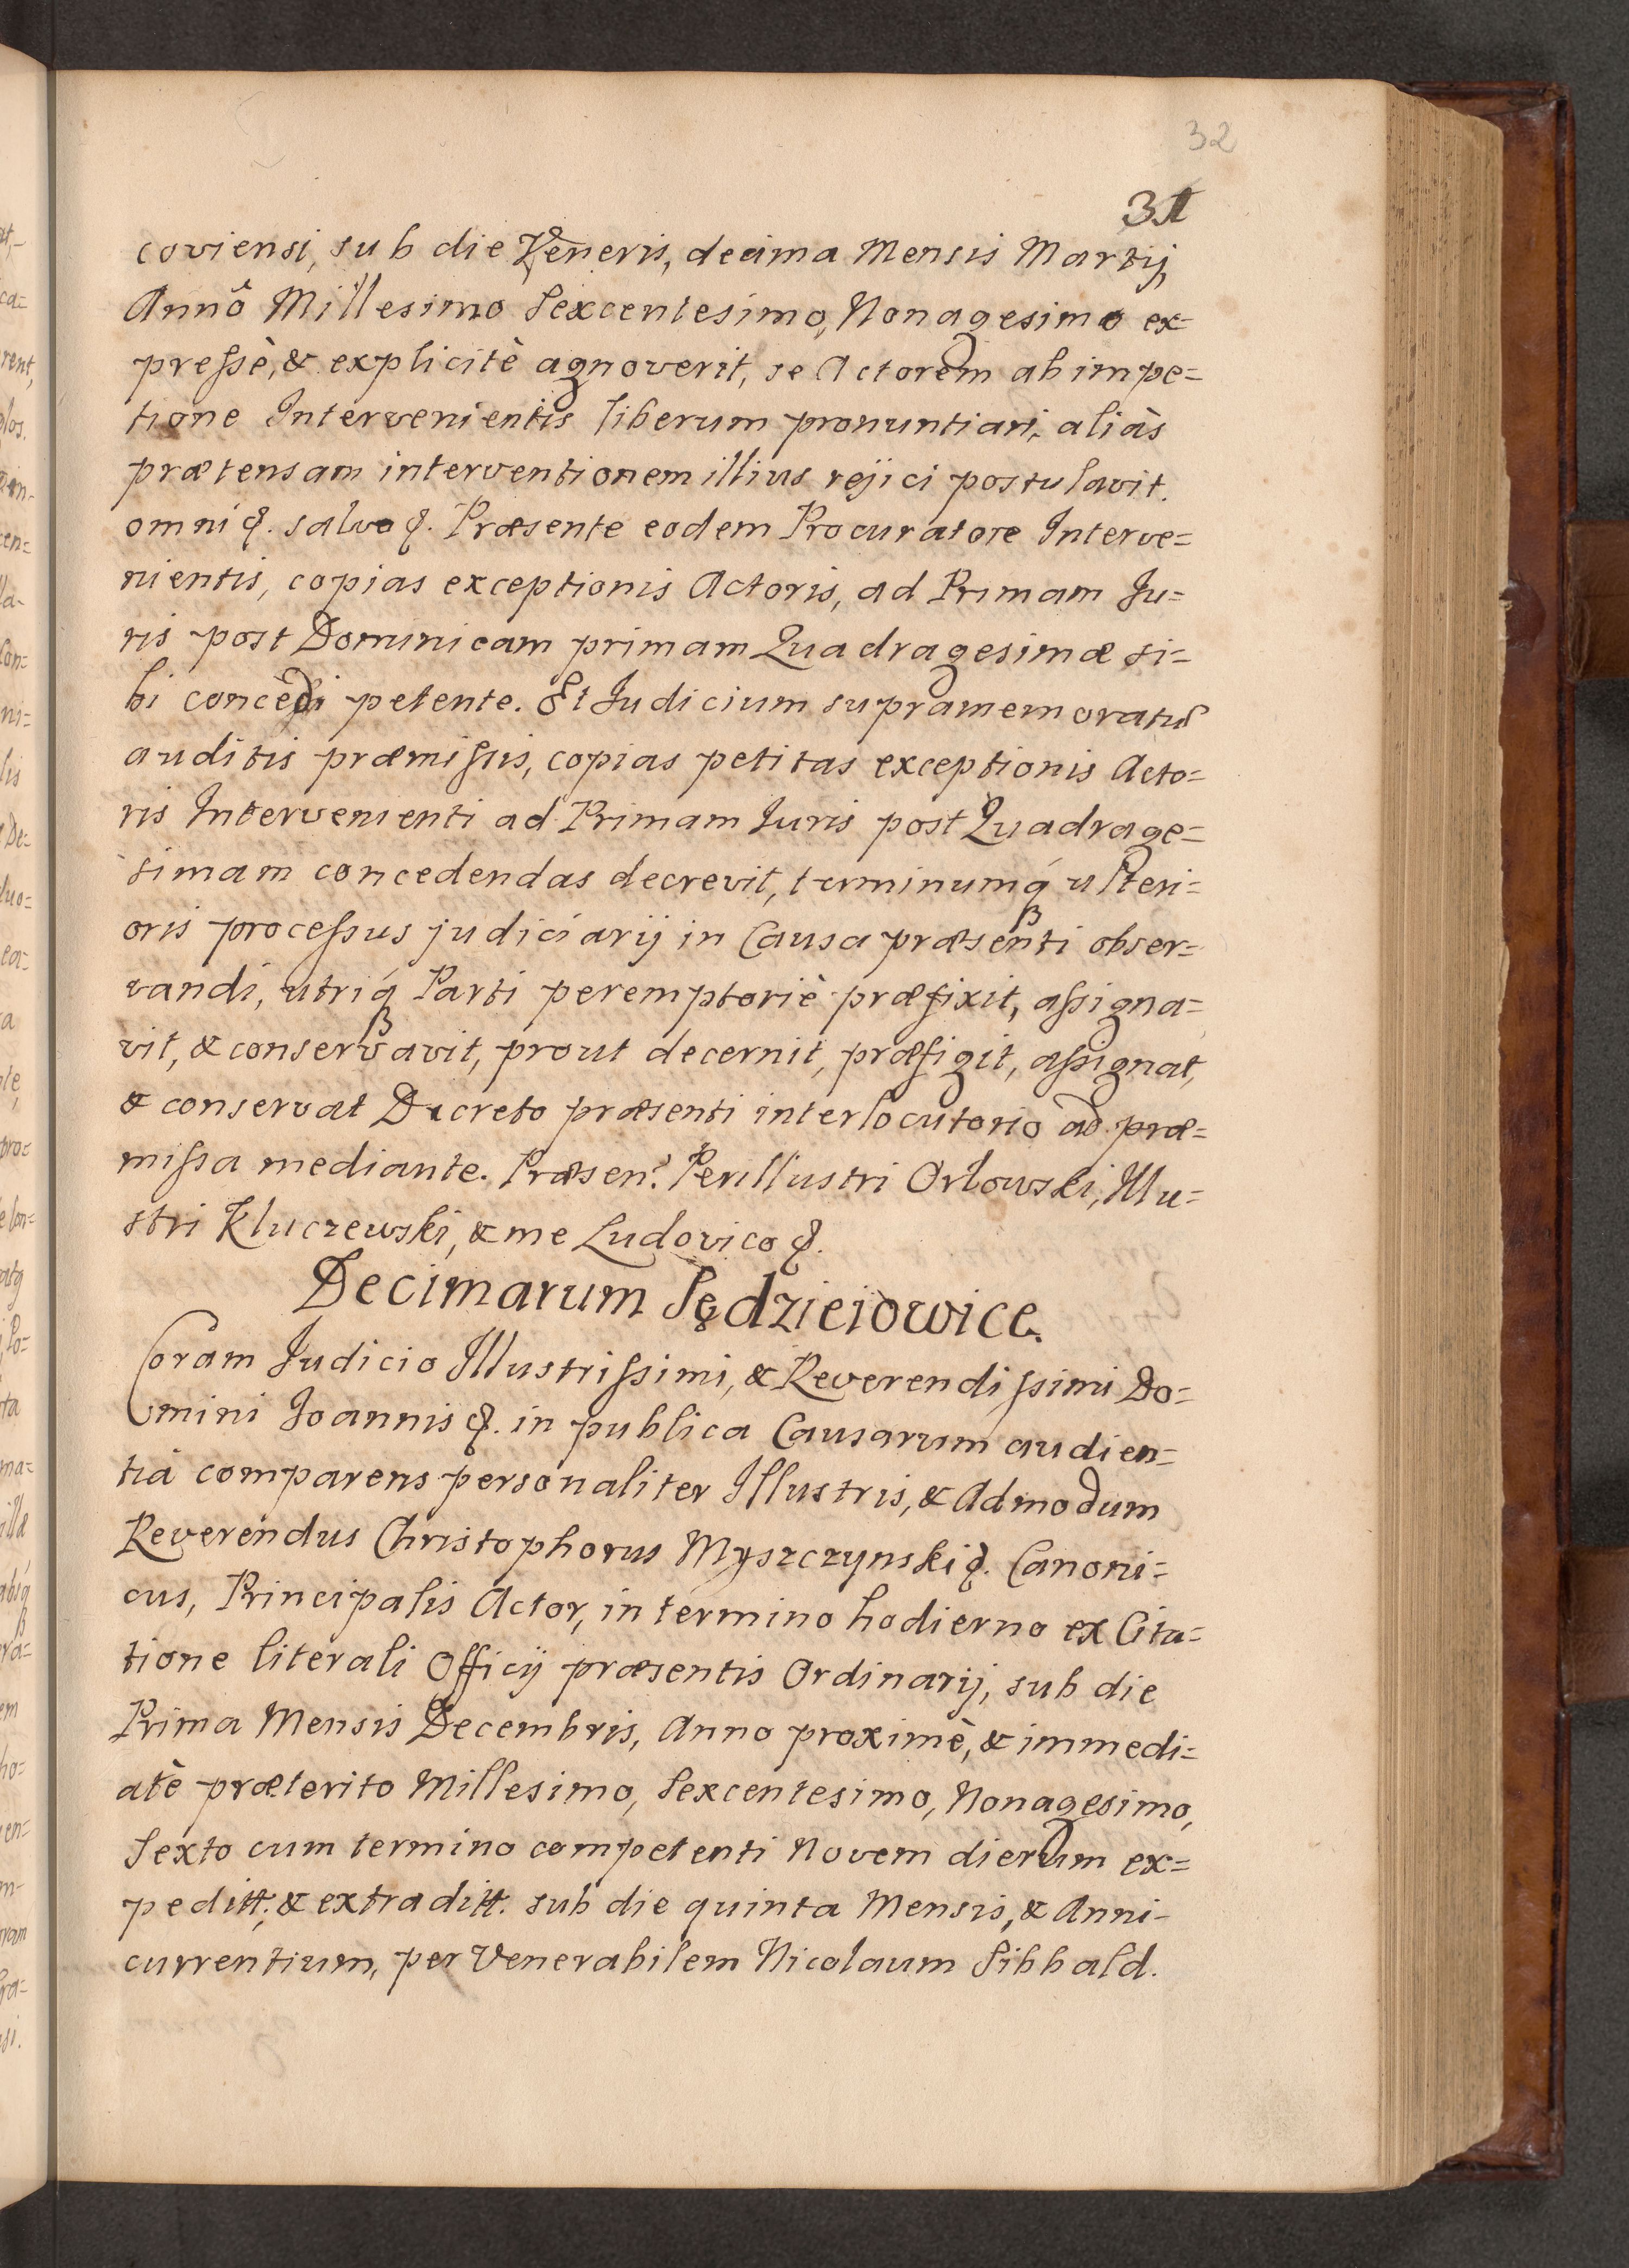 32
31
coviensi, sub die Veneris, decima Mensis Martij
Annô Millesimo Sexcentesimo, Nonagesimo ex=
pressè, & explicitè agnoverit, se Actorem ab impe=
tione Intervenientis liberum pronuntiari, aliàs
prætensam interventionem illius rejici postulavit.
omni &. salvo &. Præsente eodem Procuratore Interve=
nientis, copias exceptionis Actoris, ad Primam Ju=
ris post Dominicam primam Quadragesimæ si=
bi concedi petente. Et Judicium supramemoratum
auditis præmissis, copias petitas exceptionis Acto=
ris Intervenienti ad Primam Iuris post Quadrage=
simam concedendas decrevit, terminumq́ ulteri=
oris processus judiciarij in Causa præsenti obser=
vandi, utriq́ Parti peremptoriè præfixit, assigna=
vit, & conservavit, prout decernit, præfigit, assignat,
& conservat Decreto præsenti interlocutorio ad præ=
missa mediante. Præsen? Perillustri Orłowski, Illu=
stri Kluczewski, & me Ludovico &.
Decimarum Sędzieiowice.
Coram Judicio Illustrissimi, & Reverendissimi Do=
mini Joannis &. in publica Causarum audien=
tiâ comparens personaliter Illustris, & Admodum
Reverendus Christophorus Myszczynski &. Canoni=
cus, Principalis Actor, in termino hodierno ex Cita=
tione literali Officij præsentis Ordinarij, sub die
Prima Mensis Decembris, Anno proximè, & immedi=
atè præterito Millesimo, Sexcentesimo, Nonagesimo,
Sexto cum termino competenti Novem dierum ex=
peditt; & extraditt. sub die quinta Mensis, & Anni-
currentium, per Venerabilem Nicolaum Sibbald.